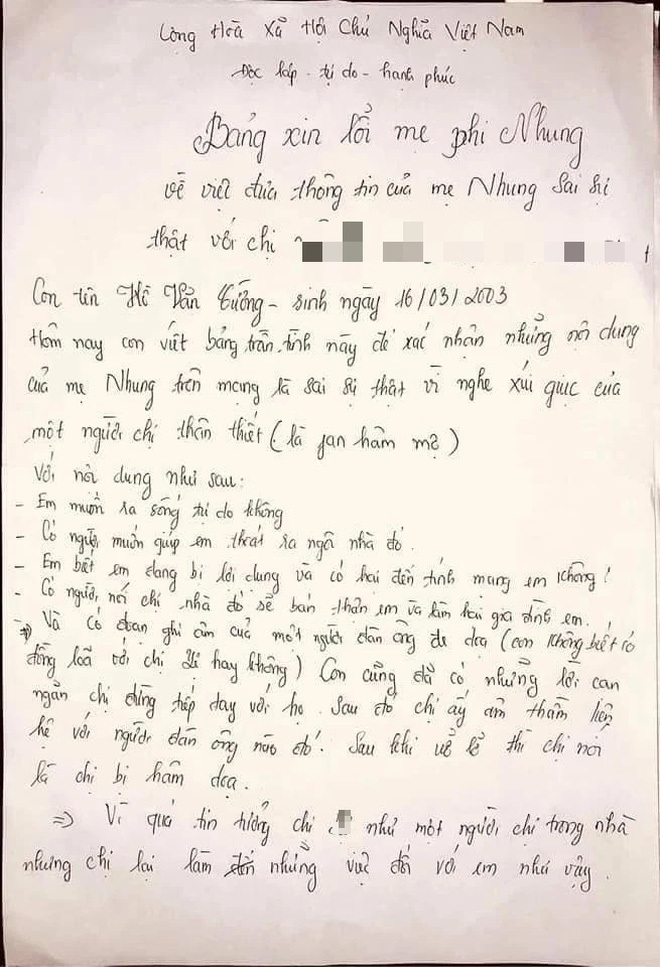 Cộng Hoà Xã Hội Chủ Nghĩa Việt Nam
Độc lâp - tự do - hạnh phúc
Bảng xin lổi mẹ phi Nhung
về việc đưa thông tin của mẹ Nhung sai sự
thật với chị
Con tên Hồ Văn Cường - sinh ngày 16/03/2003
Hôm nay con viết bảng trần tình này để xác nhận những nội dung
của mẹ Nhung trên mạng là sai sự thật vì nghe xúi giục của
một người chị thân thiết (là fan hâm mộ)
Với nội dung như sau:
- Em muốn ra sống tự do không
- Có người muốn giúp em thoát ra ngôi nhà đó.
- Em biết em đang bị lợi dụng và có hại đến tính mạng em không!
- Có người nói chị nhà đó sẽ bán thân em và làm hại gia đình em.
=> Và có đoạn ghi âm của một người đàn ông đe doạ (con không biết có
đồng loã với chị ấy hay không) Con cũng đã có những lời can
ngăn chị đừng tiếp tay với họ. Sau đó chị ấy âm thầm liên
hệ với người đàn ông nào đó. Sau khi về lể thì chị nói
là chị bị hâm doạ.
=> Vì quá tin tưởng chị như một người chị trong nhà
nhưng chị lại làm đến những việc đối với em như vậy.